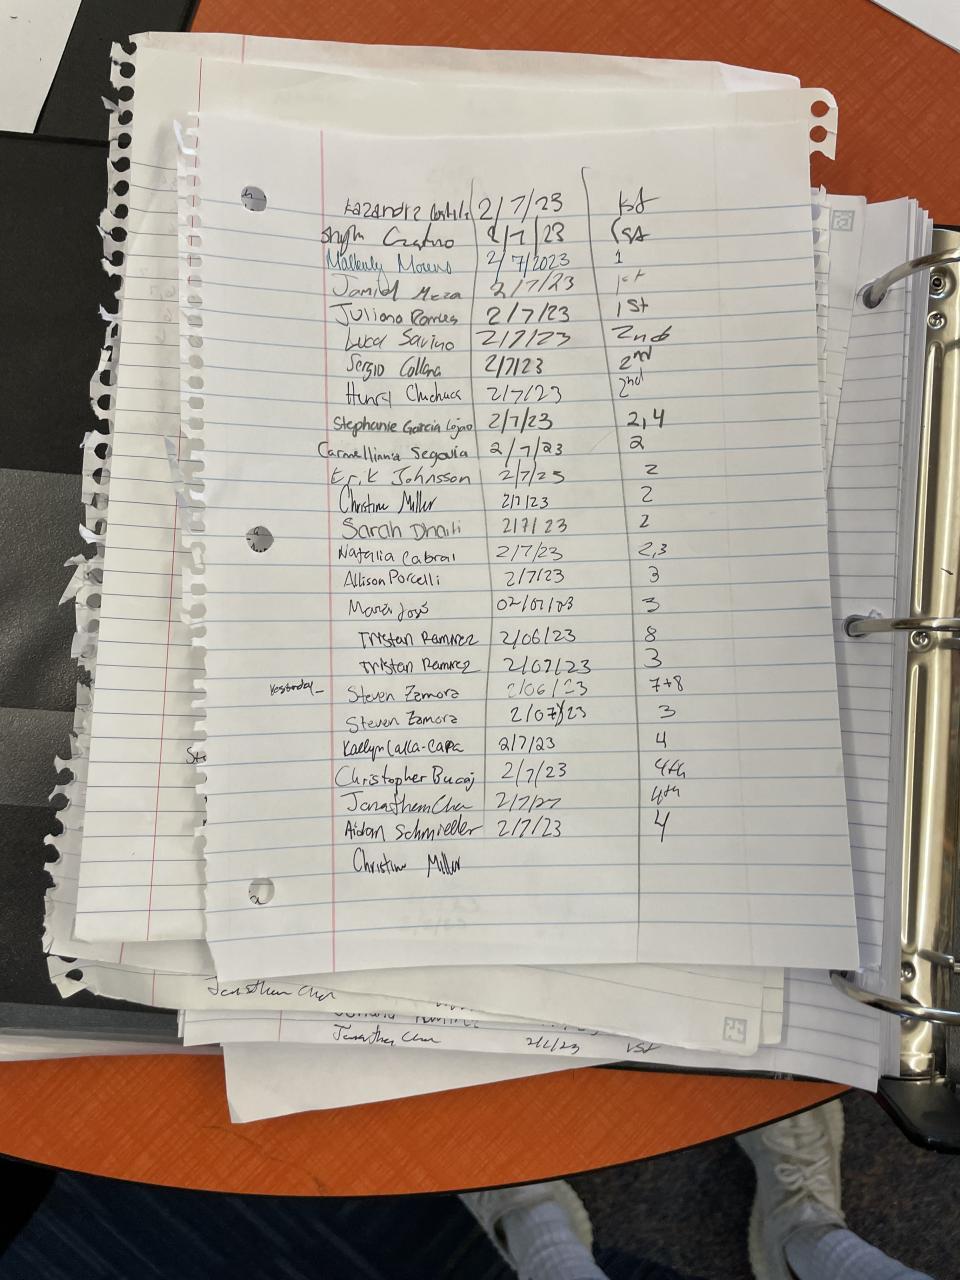 Kazandra 2/7/23 1st
Czatno 2/7/23 1st
Mallerly Moreno 2/7/2023 1
Jamiel Meza 2/7/23 1st
Juliana Ramires 2/7/23 1st
Luca Savino 2/7/23 2nd
Sergio Collana 2/7/23 2nd
Henry Chichuca 2/7/23 2nd
Stephanie Garcia Lojano 2/7/23 2,4
Carmellinnia Segovia 2/7/23 2
Erik Johnsson 2/7/23 2
Christine Miller 2/7/23 2
Sarah Dhaiti 2/7/23 2
Natalia Cabral 2/7/23 2,3
Allison Porcelli 2/7/23 3
María José 02/07/23 3
Tristan Ramirez 2/06/23 8
Tristan Ramirez 2/07/23 3
Yesterday- Steven Zamora 2/06/23 7+8
Steven Zamora 2/07/23 3
Kaelyn Calla-Capa 2/7/23 4
Christopher Bucaj 2/7/23 4th
Jonathan Chu 2/7/27 4th
Aidan Schmieder 2/7/23 4
Christine Miller
Jonathan Chu
Jonathan Chu 1st